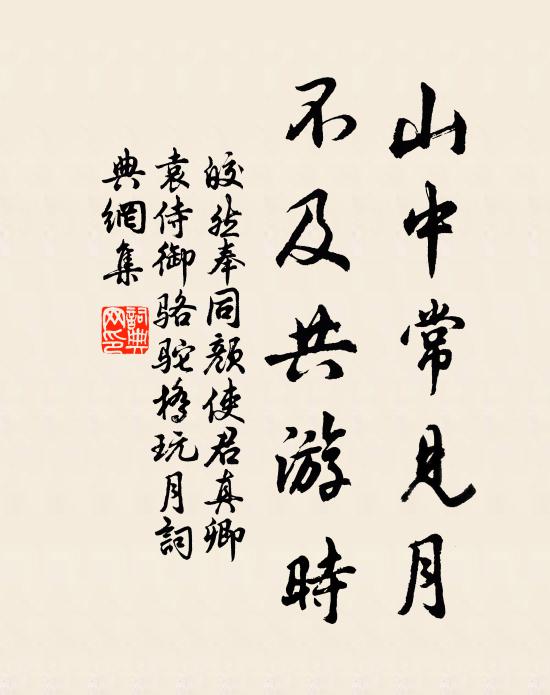 山中常見月
不及共游時
皎然奉同顏使君真卿
袁侍御駱駝橋玩月詞
典網集
詞典
网印